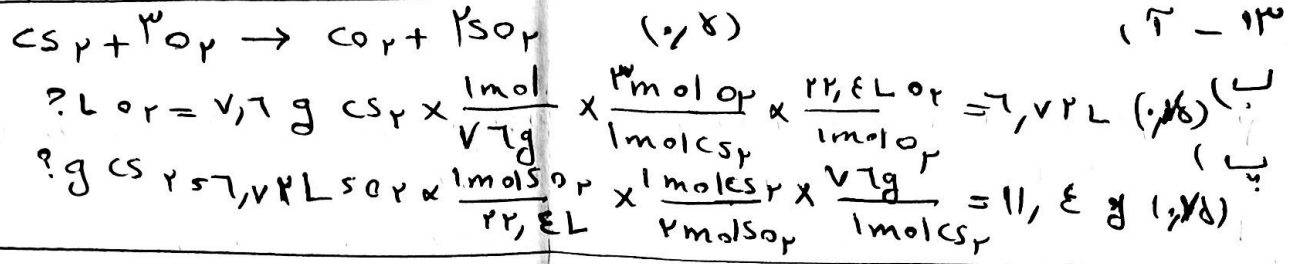 ۱۳ - آ) CS۲ + ۳O۲ → CO۲ + ۲SO۲ (۰/۵)
ب) ?L O۲ = ۷,۶ g CS۲ × ۱mol/۷۶g × ۳mol O۲/۱mol CS۲ × ۲۲,۴ L O۲/۱mol O۲ = ۶,۷۲ L (۰,۷۵)
پ) ?g CS۲ = ۶,۷۲ L SO۲ × ۱mol SO۲/۲۲,۴ L × ۱mol CS۲/۲mol SO۲ × ۷۶g/۱mol CS۲ = ۱۱,۴ g (۰,۷۵)